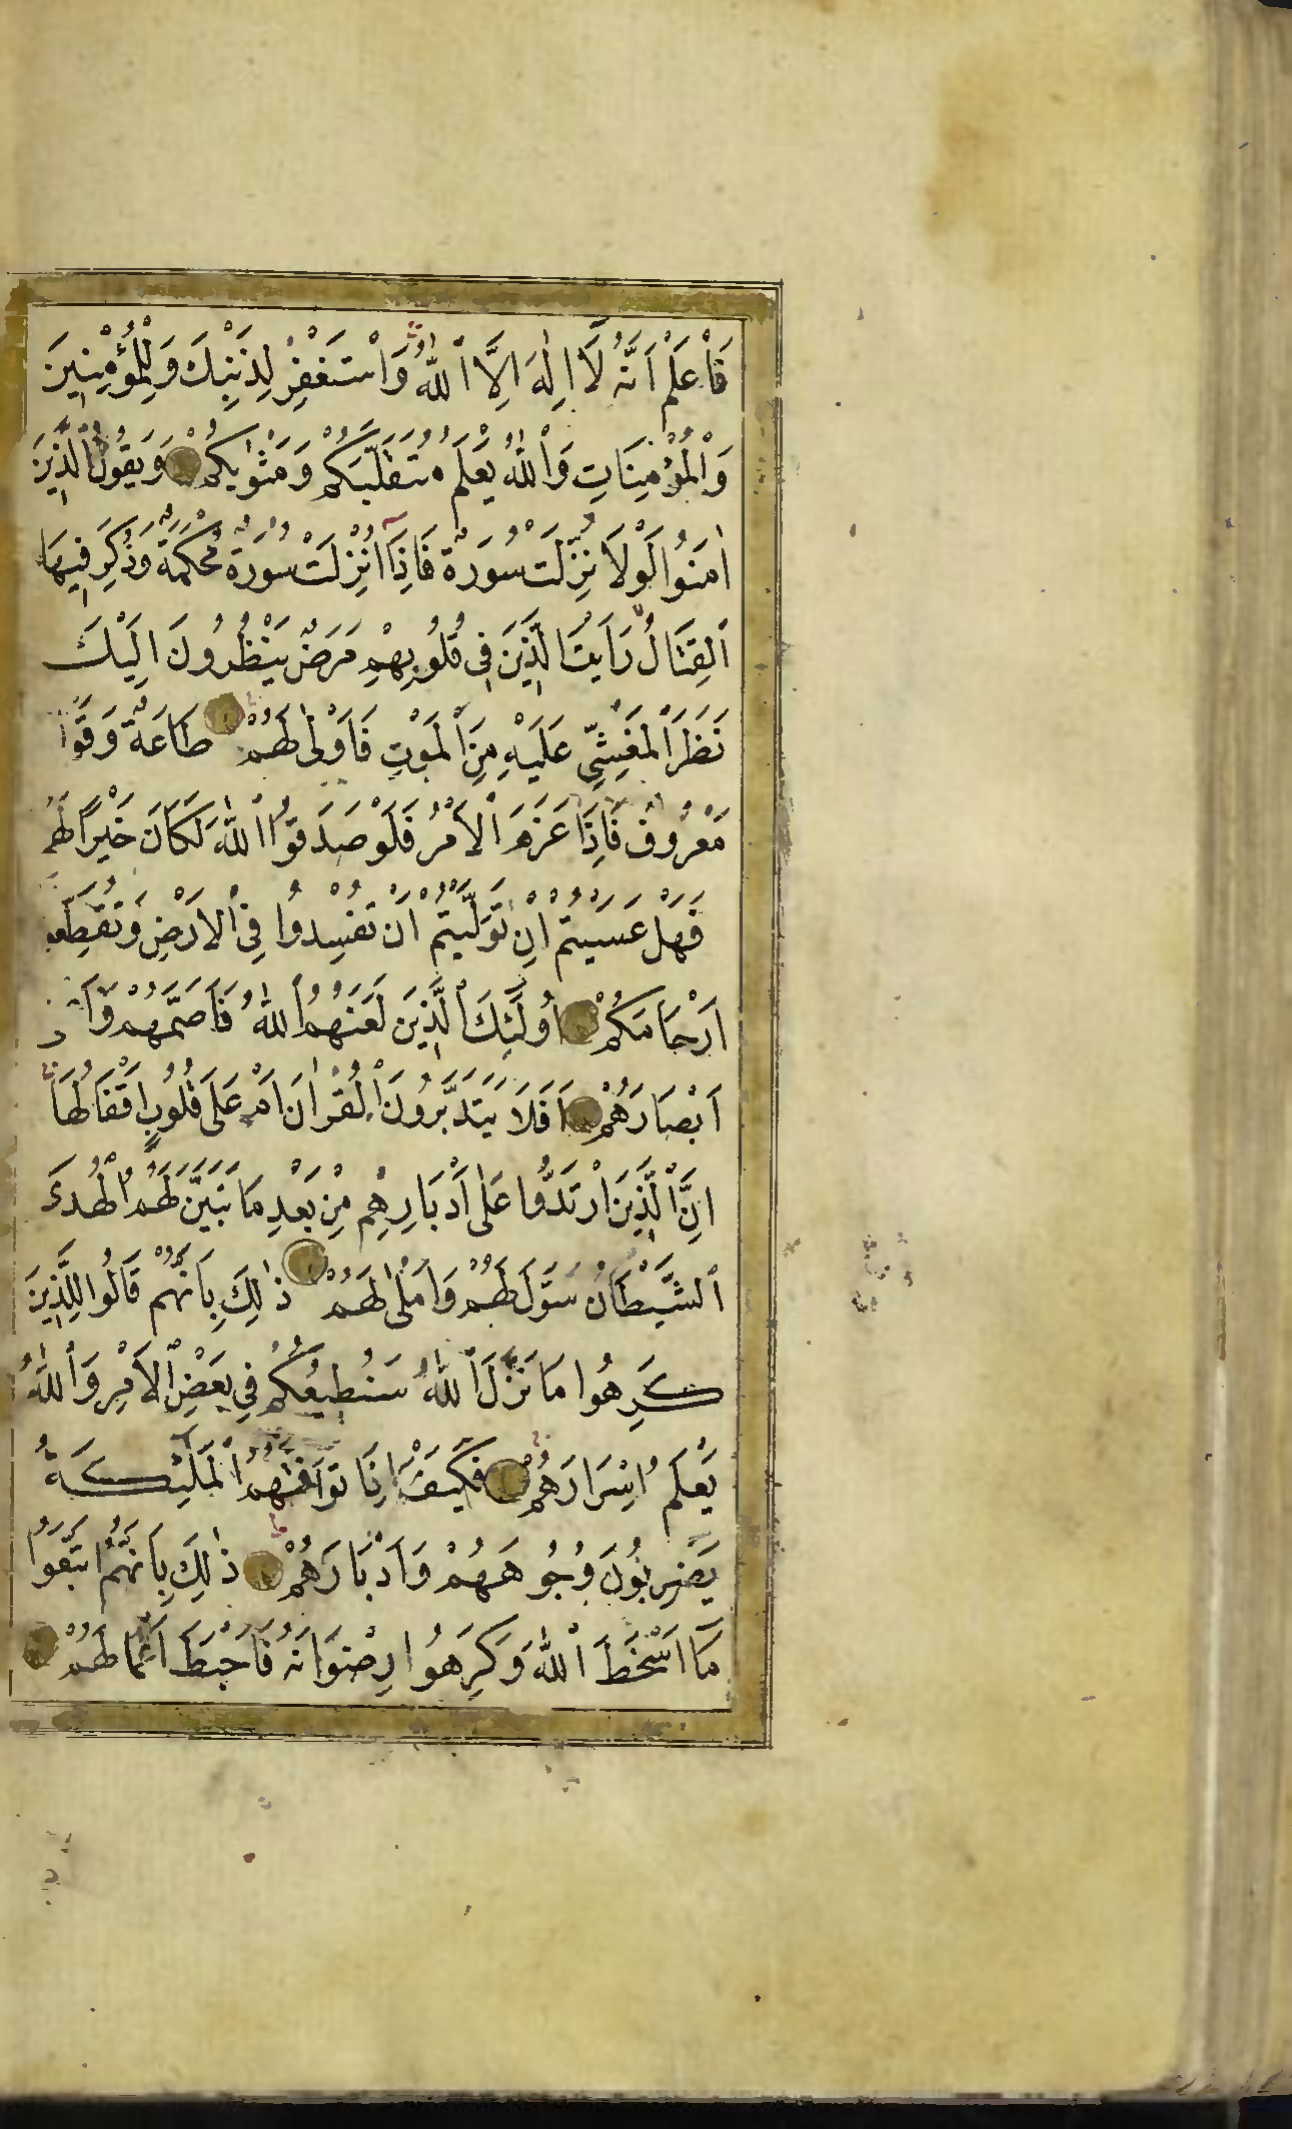 فَاْعلَمْ اَنَّهُ لَٓا اِلٰهَ اِلَّا اللّٰهُ وَاسْتَغْفِرْ لِذَنْبِكَ وَلِلْمُؤْمِنِينَ
وَالْمُؤْمِنَاتِ وَاللّٰهُ يَعْلَمُ مُتَقَلَّبَكُمْ وَمَثْوٰيكُمْ وَيَقُولُ الَّذِينَ
اٰمَنُوا لَوْلَا نُزِّلَتْ سُورَةٌ فَاِذَٓا اُنْزِلَتْ سُورَةٌ مُحْكَمَةٌ وَذُكِرَ فِيهَا
الْقِتَالُ رَاَيْتَ الَّذِينَ فِي قُلُوبِهِمْ مَرَضٌ يَنْظُرُونَ اِلَيْكَ
نَظَرَ الْمَغْشِيِّ عَلَيْهِ مِنَ الْمَوْتِ فَاَوْلٰى لَهُمْ طَاعَةٌ وَقَوْ
مَعْرُوفٌ فَاِذَا عَزَمَ الْاَمْرُ فَلَوْ صَدَقُوا اللّٰهَ لَكَانَ خَيْرًا لَهُمْ
فَهَلْ عَسَيْتُمْ اِنْ تَوَلَّيْتُمْ اَنْ تُفْسِدُوا فِي الْاَرْضِ وَتُقَطِّعُو
اَرْحَامَكُمْ اُولٰٓئِكَ الَّذِينَ لَعَنَهُمُ اللّٰهُ فَاَصَمَّهُمْ وَاَ
اَبْصَارَهُمْ اَفَلَا يَتَدَبَّرُونَ الْقُرْاٰنَ اَمْ عَلَى قُلُوبٍ اَقْفَالُهَا
اِنَّ الَّذِينَ ارْتَدُّوا عَلٰى اَدْبَارِهِمْ مِنْ بَعْدِ مَا تَبَيَّنَ لَهُمُ الْهُدَى
الشَّيْطَانُ سَوَّلَ لَهُمْ وَاَمْلٰى لَهُمْ ذٰلِكَ بِاَنَّهُمْ قَالُوا لِلَّذِينَ
كَرِهُوا مَا نَزَّلَ اللّٰهُ سَنُطِيعُكُمْ فِي بَعْضِ الْاَمْرِ وَاللّٰهُ
يَعْلَمُ اِسْرَارَهُمْ فَكَيْفَ اِذَا تَوَفَّتْهُمُ الْمَلٰٓئِكَةُ
يَضْرِبُونَ وُجُوهَهُمْ وَاَدْبَارَهُمْ ذٰلِكَ بِاَنَّهُمُ اتَّبَعُوا
مَٓا اَسْخَطَ اللّٰهَ وَكَرِهُوا رِضْوَانَهُ فَاَحْبَطَ اَعْمَالَهُمْ